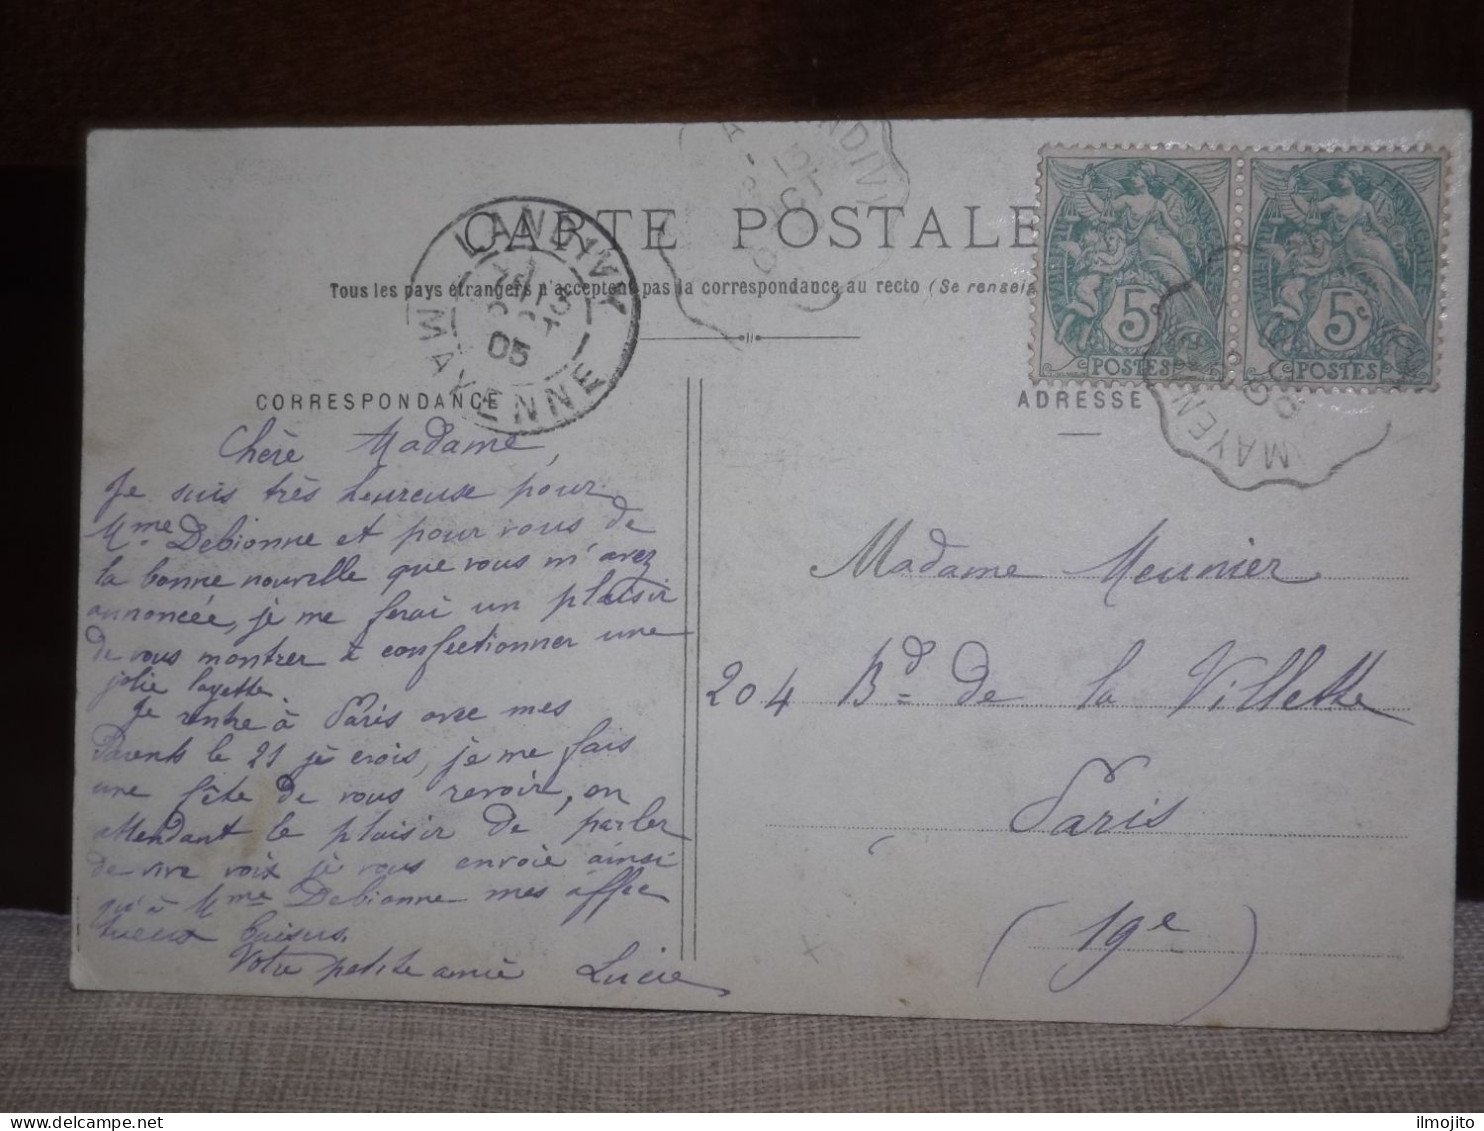 CARTE POSTALE
Tous les pays étrangers n'acceptent pas la correspondance au recto (Se renseig
CORRESPONDANCE
ADRESSE
LANDIVY
05
MAYENNE
5c
POSTES
5c
POSTES
MAYEN
Chère Madame,
Je suis très heureuse pour
Mme Debionne et pour vous de
la bonne nouvelle que vous m'avez
annoncée, je me ferai un plaisir
de vous montrer à confectionner une
jolie layette.
Je rentre à Paris avec mes
Parents le 21 je crois, je me fais
une fête de vous revoir, en
attendant le plaisir de parler
de vive voix je vous envoie ainsi
qu'à Mme Debionne mes affec
tueux baisers.
Votre petite amie Lucie
Madame Meunier
204 Bd de la Villette
Paris
(19e)
delcampe.net
ilmojito